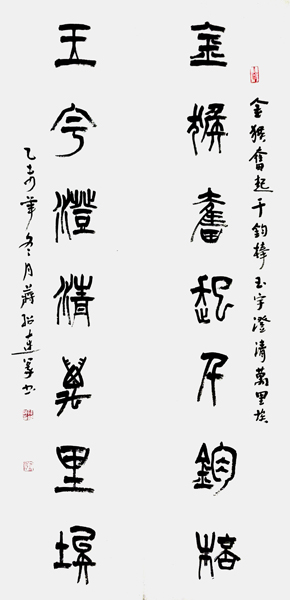 金猴奮起千鈞棒玉宇澄清萬里埃
金猴奮起千鈞棒
玉宇澄清萬里埃
乙未年冬月蔣